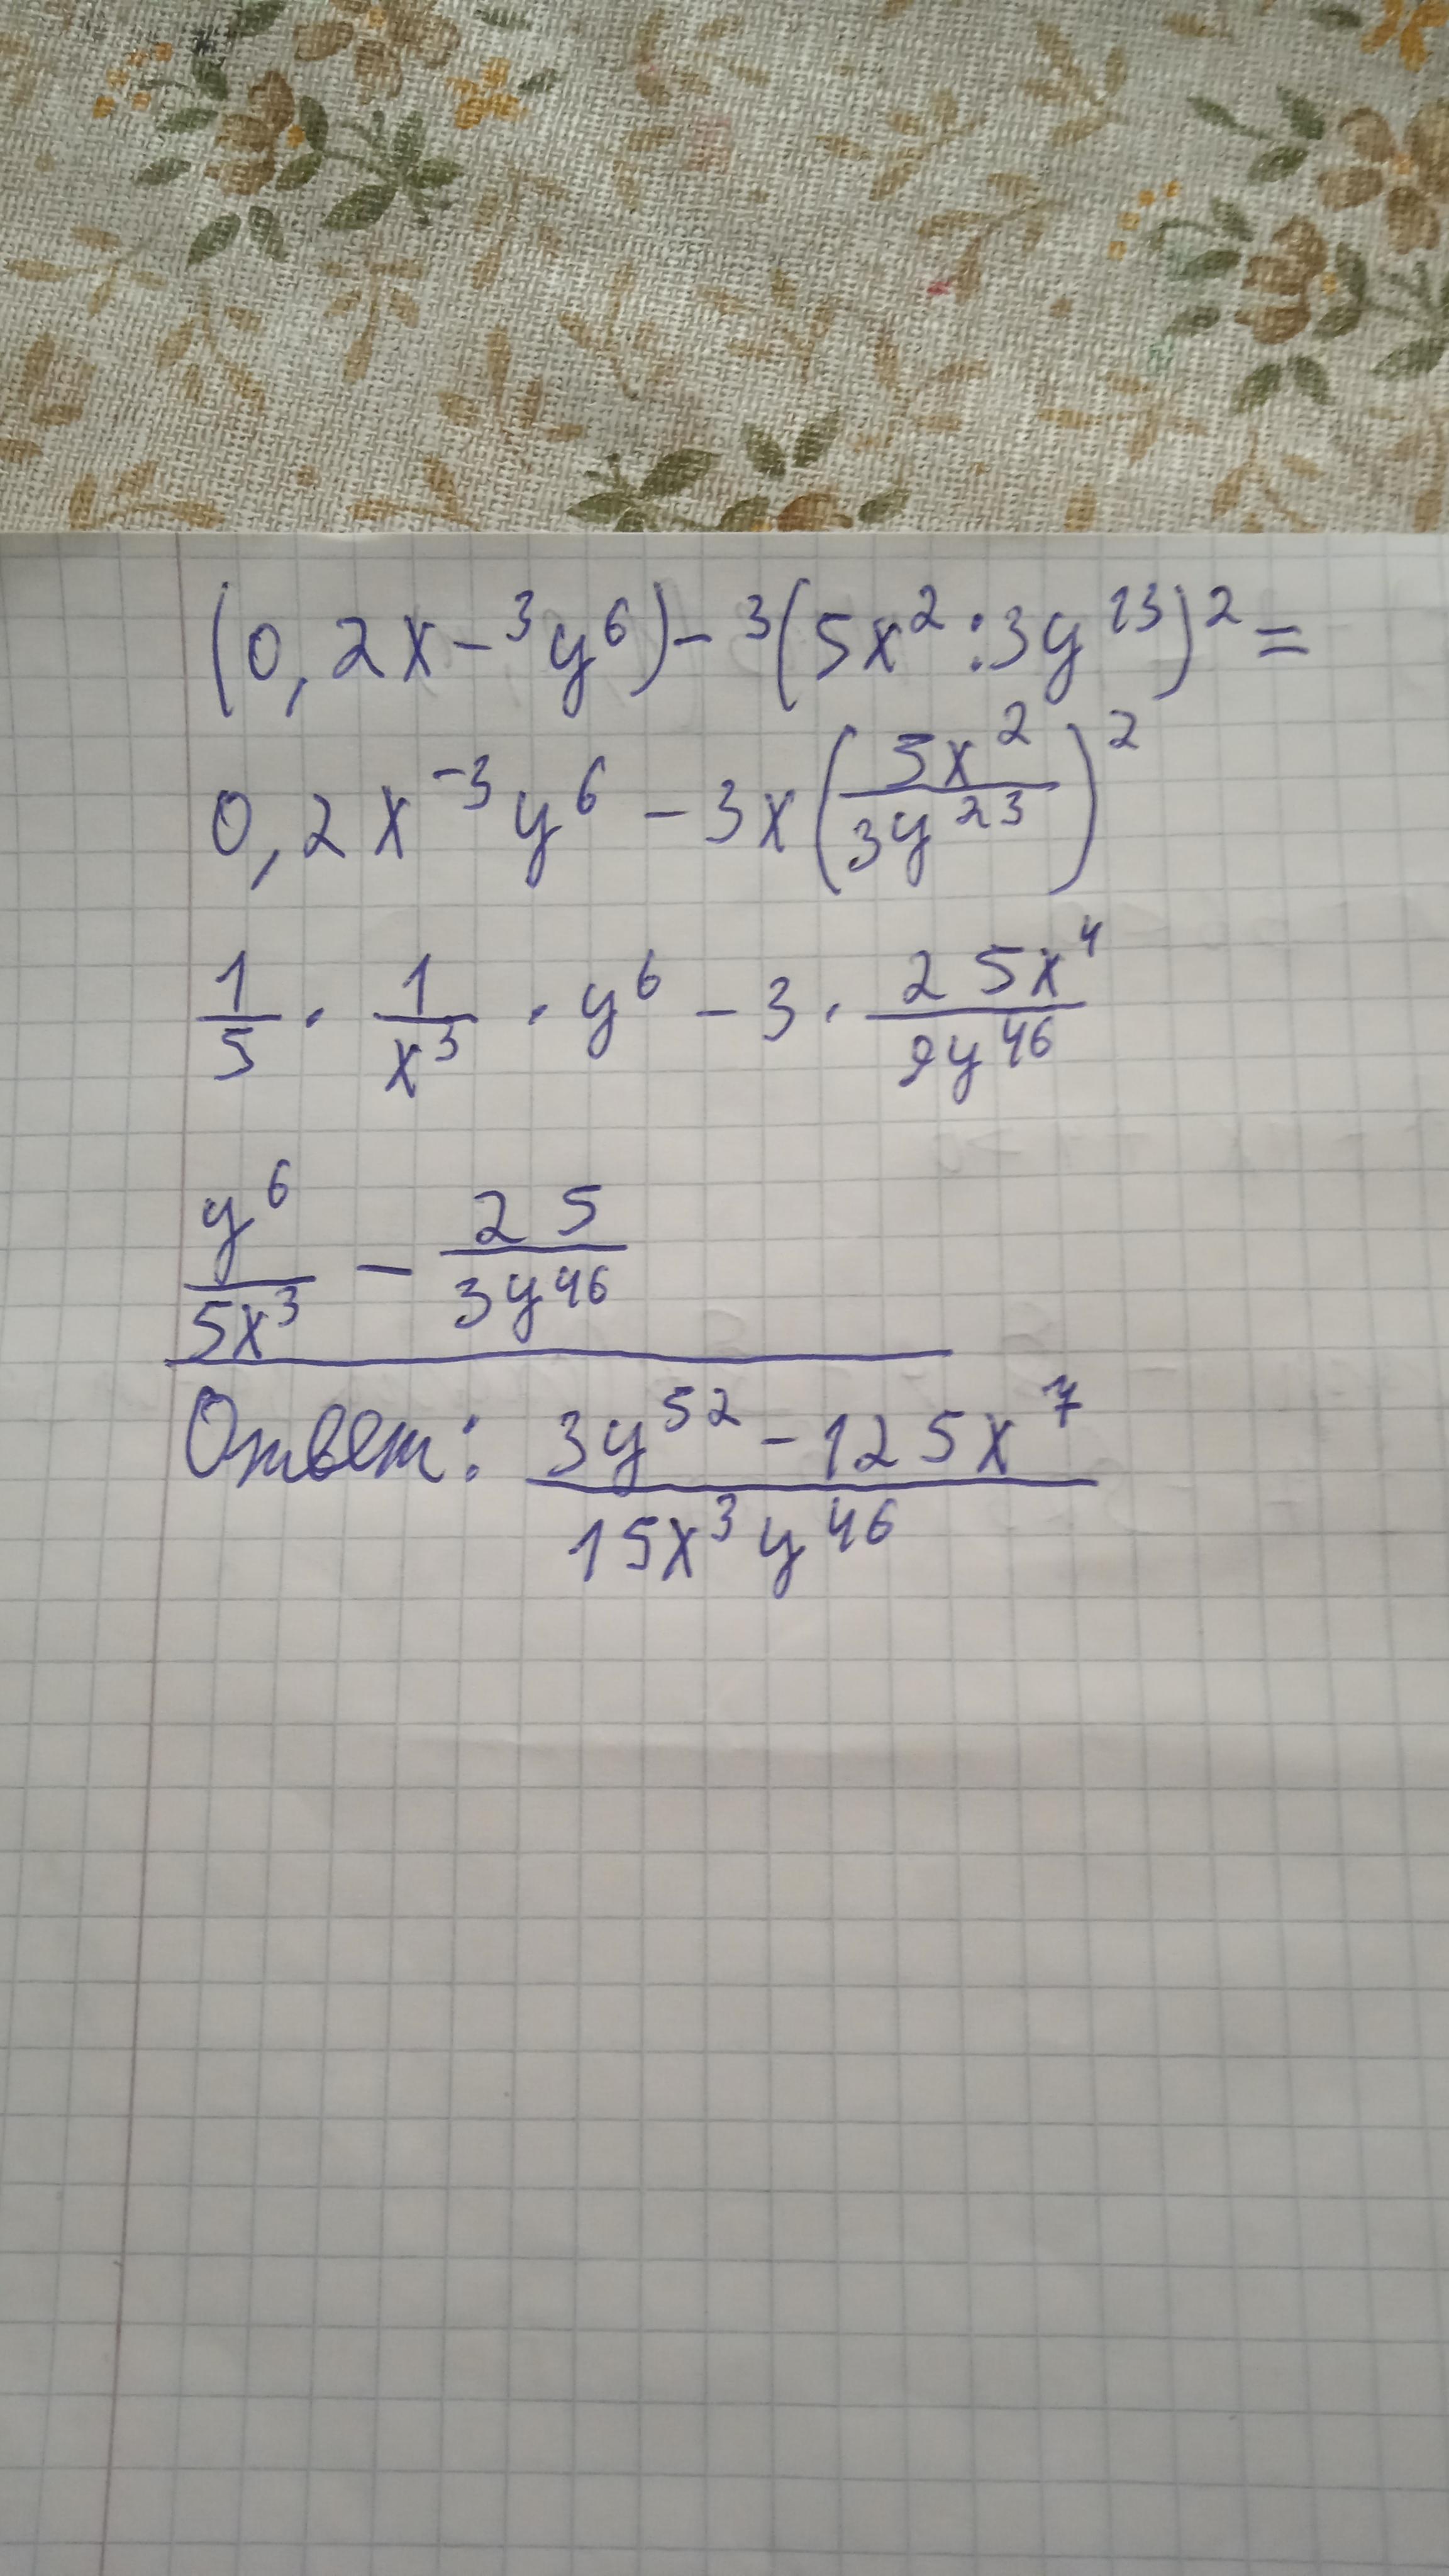 (0,2x-³y⁶)-³(5x²:3y²³)²=
0,2x⁻³y⁶-3x(5x²/3y²³)²
1/5·1/x³·y⁶-3·25x⁴/9y⁴⁶
y⁶/5x³-25/3y⁴⁶
Ответ: 3y⁵²-125x⁷/15x³y⁴⁶